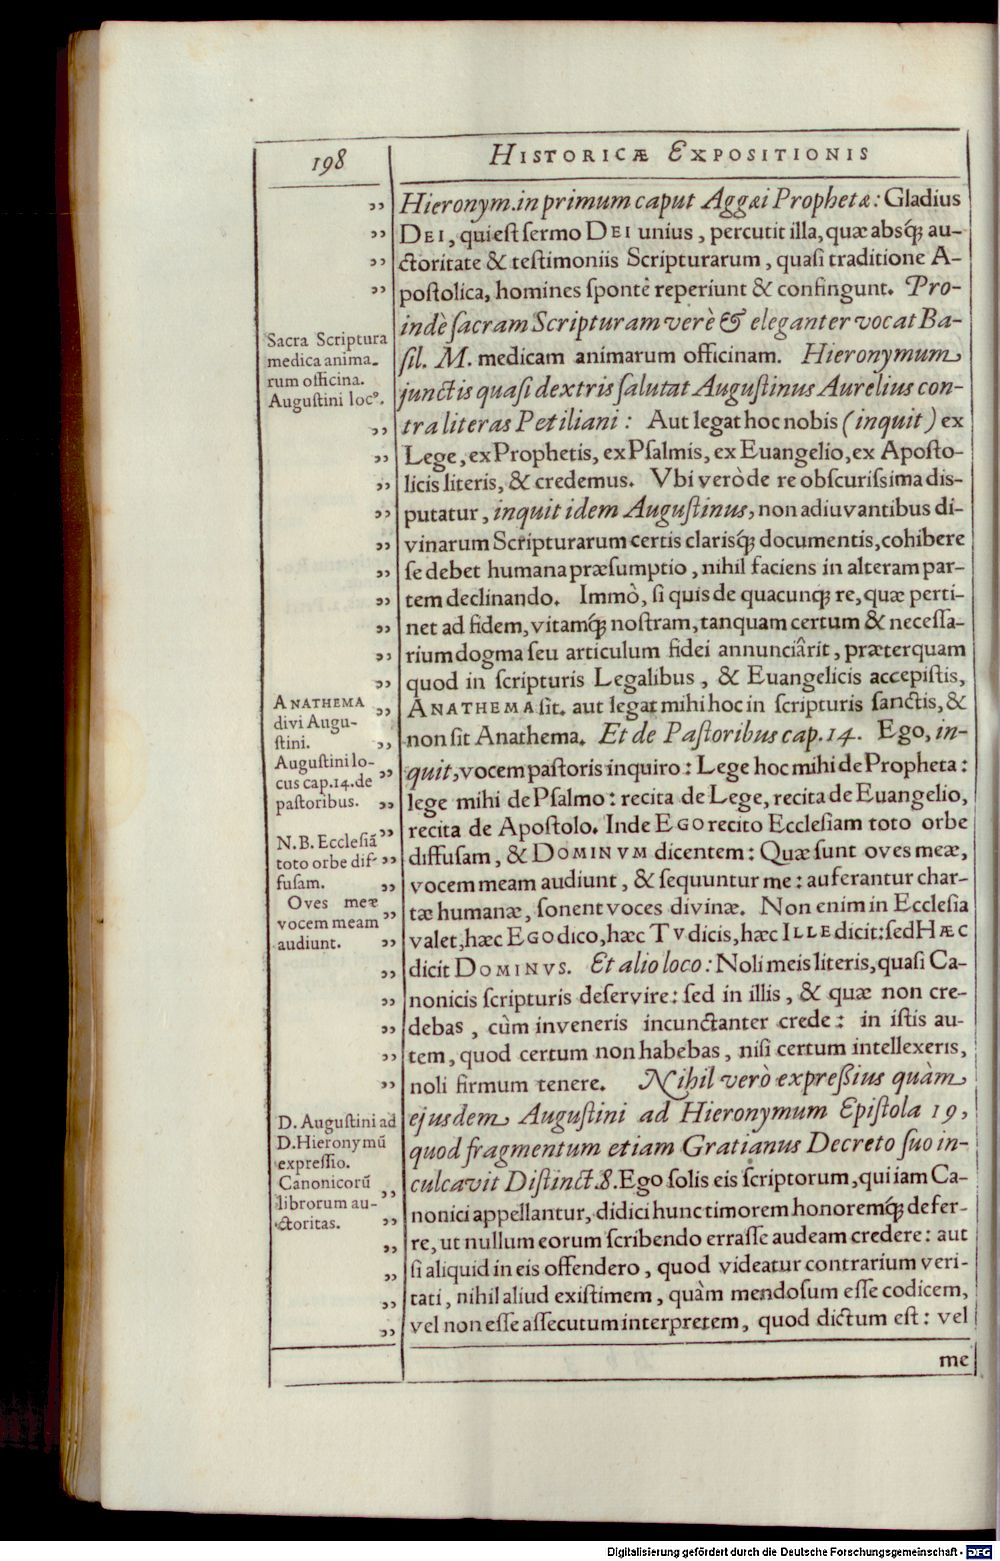 198
HISTORICÆ EXPOSITIONIS
Hieronym. in primum caput Aggæi Prophetæ: Gladius
DEI, qui est sermo DEI unius, percutit illa, quæ absq́; au-
ctoritate & testimoniis Scripturarum, quasi traditione A-
postolica, homines spontè reperiunt & confingunt. Pro-
indè sacram Scripturam verè & eleganter vocat Ba-
sil. M. medicam animarum officinam. Hieronymum
junctis quasi dextris salutat Augustinus Aurelius con-
tra literas Petiliani: Aut legat hoc nobis (inquit) ex
Lege, ex Prophetis, ex Psalmis, ex Euangelio, ex Aposto-
licis literis, & credemus. Vbi verò de re obscurissima dis-
putatur, inquit idem Augustinus, non adiuvantibus di-
vinarum Scripturarum certis clarisq́; documentis, cohibere
se debet humana præsumptio, nihil faciens in alteram par-
tem declinando. Immò, si quis de quacunq; re, quæ perti-
net ad fidem, vitamq́; nostram, tanquam certum & necessa-
rium dogma seu articulum fidei annunciârit, præterquam
quod in scripturis Legalibus, & Euangelicis accepistis,
ANATHEMA sit. aut legat mihi hoc in scripturis sanctis, &
non sit Anathema. Et de Pastoribus cap. 14. Ego, in-
quit, vocem pastoris inquiro: Lege hoc mihi de Propheta:
lege mihi de Psalmo: recita de Lege, recita de Euangelio,
recita de Apostolo. Inde EGO recito Ecclesiam toto orbe
diffusam, & DOMINVM dicentem: Quæ sunt oves meæ,
vocem meam audiunt, & sequuntur me: auferantur char-
tæ humanæ, sonent voces divinæ. Non enim in Ecclesia
valet, hæc EGO dico, hæc TV dicis, hæc ILLE dicit: sed HÆC
dicit DOMINVS. Et alio loco: Noli meis literis, quasi Ca-
nonicis scripturis deservire: sed in illis, & quæ non cre-
debas, cùm inveneris incunctanter crede: in istis au-
tem, quod certum non habebas, nisi certum intellexeris,
noli firmum tenere. Nihil verò expreßius quàm
ejusdem Augustini ad Hieronymum Epistola 19,
quod fragmentum etiam Gratianus Decreto suo in-
culcavit Distinct. 8. Ego solis eis scriptorum, qui iam Ca-
nonici appellantur, didici hunc timorem honoremq́; defer-
re, ut nullum eorum scribendo errasse audeam credere: aut
si aliquid in eis offendero, quod videatur contrarium veri-
tati, nihil aliud existimem, quàm mendosum esse codicem,
vel non esse assecutum interpretem, quod dictum est: vel
me
Sacra Scriptura
medica anima-
rum officina.
Augustini locꝰ.
ANATHEMA
divi Augu-
stini.
Augustini lo-
cus cap. 14. de
pastoribus.
N.B. Ecclesiã
toto orbe dif-
fusam.
Oves meæ
vocem meam
audiunt.
D. Augustini ad
D. Hieronymũ
expressio.
Canonicorũ
librorum au-
ctoritas.
Digitalisierung gefördert durch die Deutsche Forschungsgemeinschaft - DFG